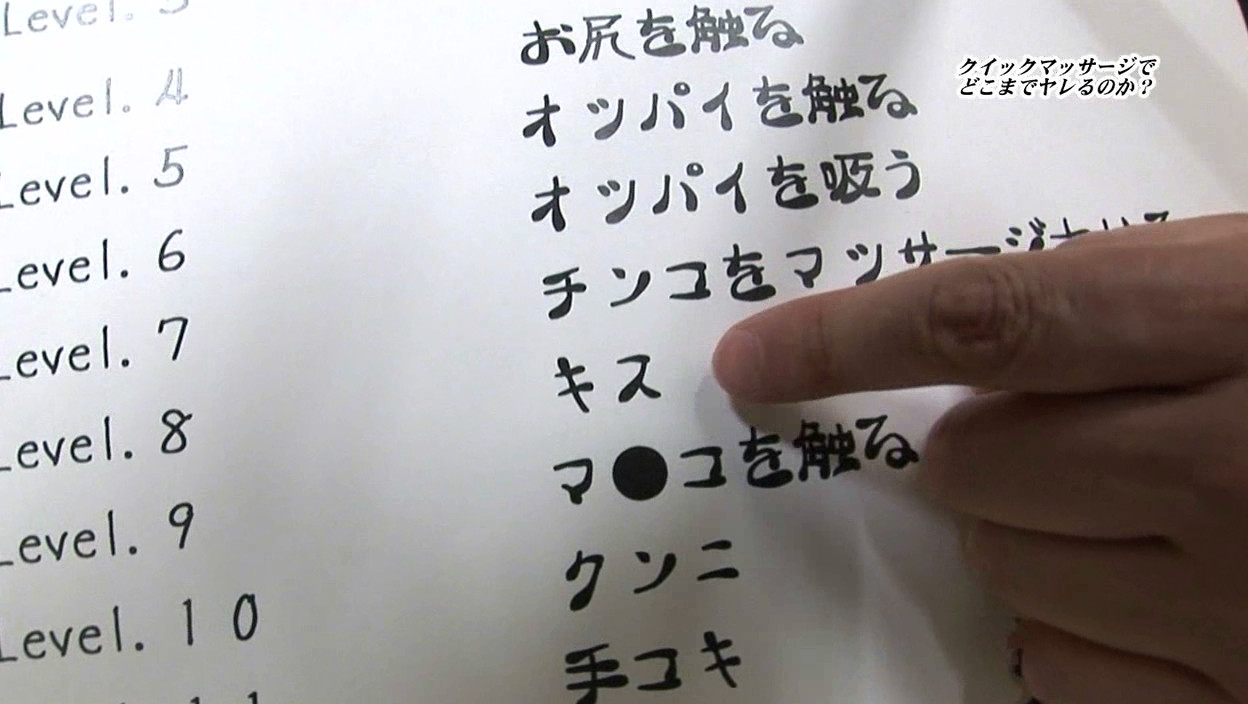 Level. 3 お尻を触る
Level. 4 オッパイを触る
Level. 5 オッパイを吸う
Level. 6 チンコをマッサージ
Level. 7 キス
Level. 8 マ●コを触る
Level. 9 クンニ
Level. 10 手コキ
クイックマッサージで
どこまでヤレるのか?